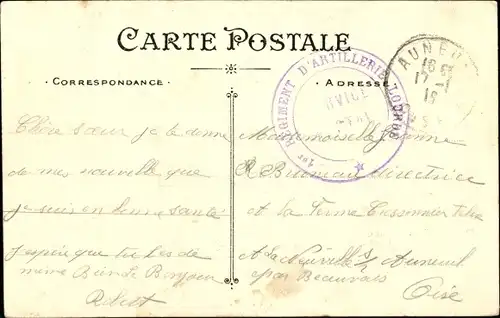 CARTE POSTALE
CORRESPONDANCE
ADRESSE
1er RÉGIMENT D'ARTILLERIE LOURDE
AUNEUIL
16
17
16
Chère sœur je te donne
de mes nouvelle que
je suis en bonne santé
J'espère que tu es de
même Bonjour
Mademoiselle Jeanne
directrice
et La Ferme
A La Neuville s/ Auneuil
par Beauvais
Oise